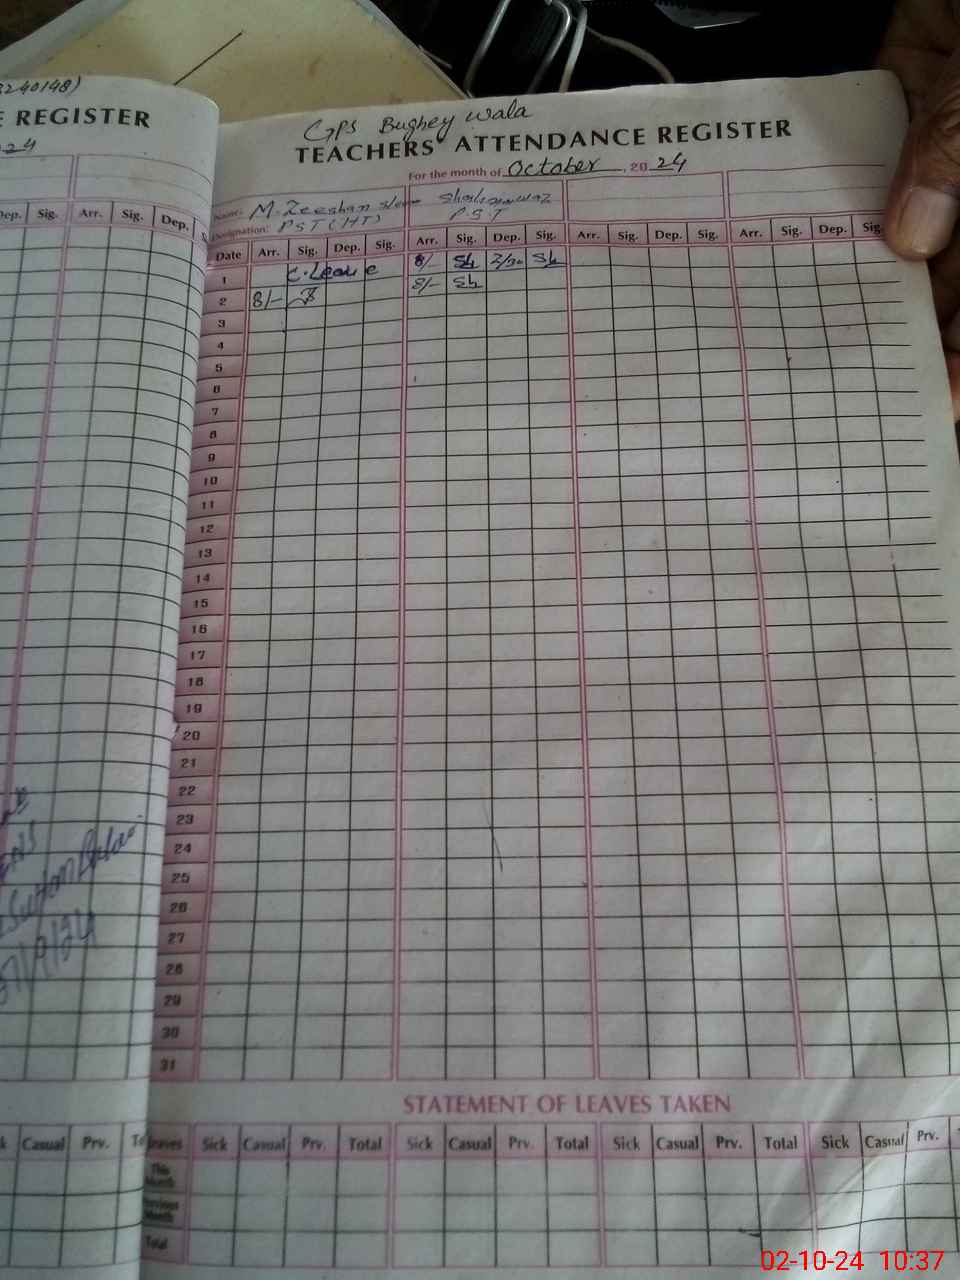 3240148)
E REGISTER
24
Dep. Sig. Arr. Sig. Dep. S
GPS Bughey wala
TEACHERS' ATTENDANCE REGISTER
For the month of October, 20 24
Name: M. Zeeshan
Designation: PST (HT) P.S.T
Date Arr. Sig. Dep. Sig. Arr. Sig. Dep. Sig. Arr. Sig. Dep. Sig. Arr. Sig. Dep. Sig.
1 C. Leave 8/- Sh 2/30 Sh
2 8/- 8/- Sh
3
4
5
6
7
8
9
10
11
12
13
14
15
16
17
18
19
20
21
22
23
24
25
26
27
28
29
30
31
STATEMENT OF LEAVES TAKEN
k Casual Prv. To
Leaves Sick Casual Prv. Total Sick Casual Prv. Total Sick Casual Prv. Total Sick Casual Prv. T
This Month
Previous Month
Total
02-10-24 10:37